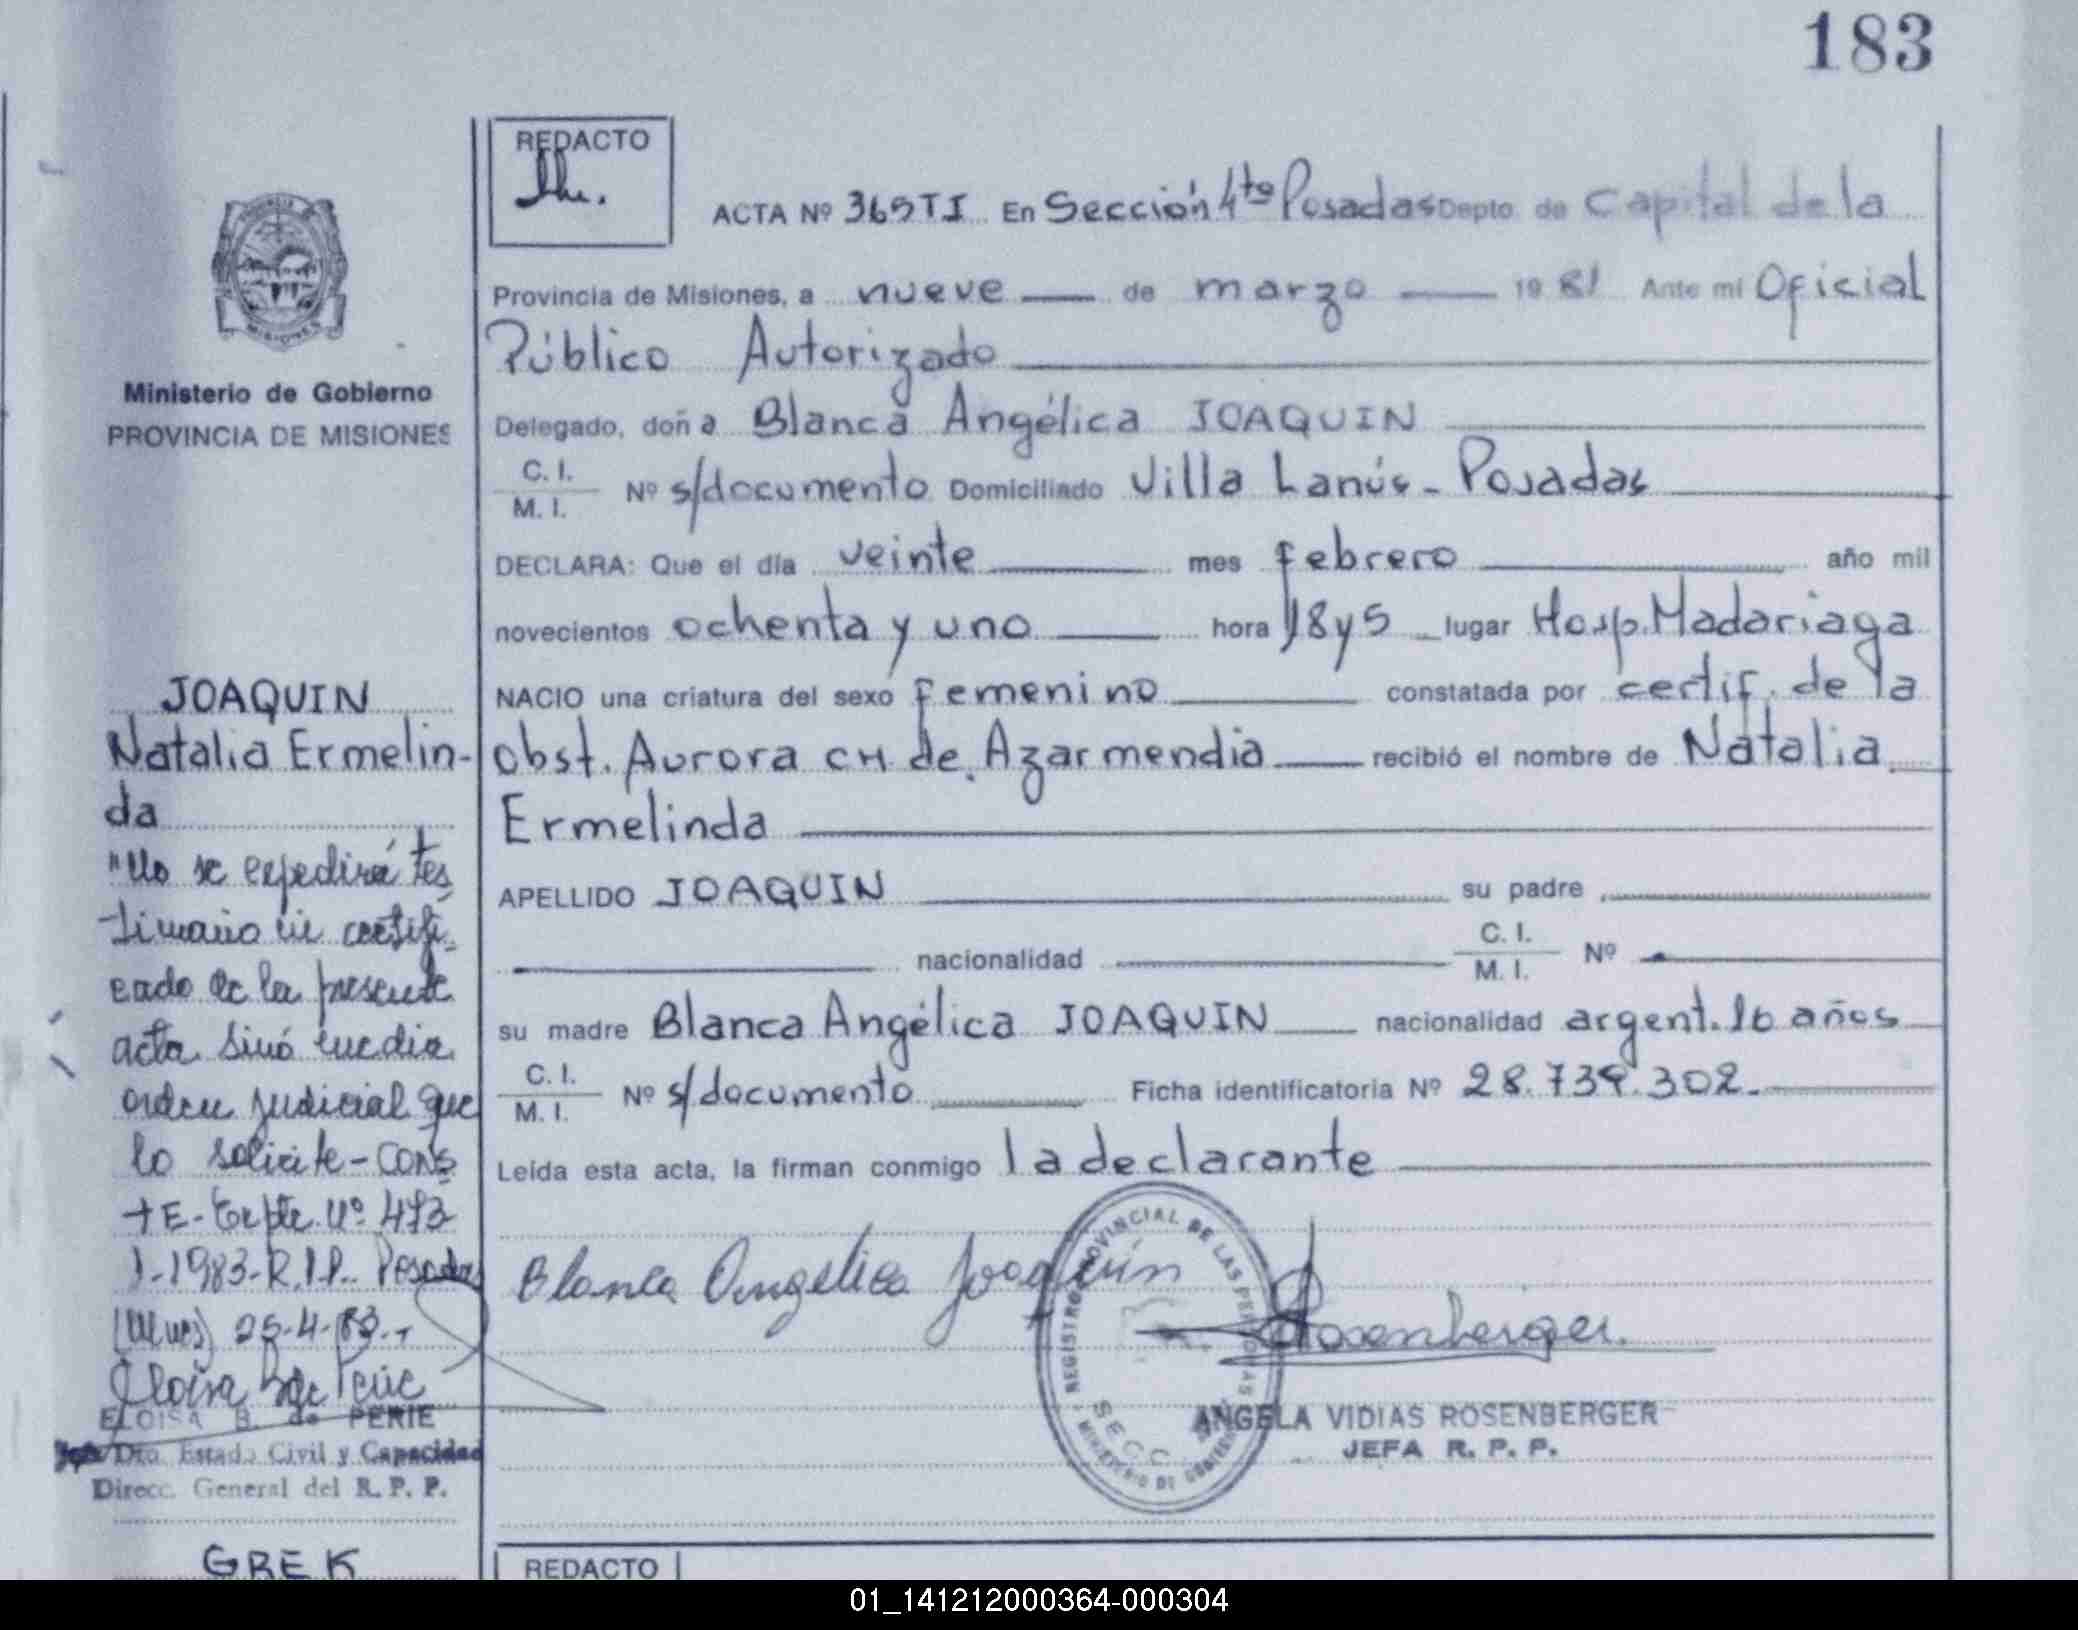 183
REDACTO
ACTA Nº 365TI En Sección 4ta Posadas Depto de Capital de la
Provincia de Misiones, a nueve de marzo 1981 Ante mi Oficial
Público Autorizado
Delegado, doña Blanca Angélica JOAQUIN
C. I.
M. I. Nº s/documento Domiciliado Villa Lanús - Posadas
DECLARA: Que el día veinte mes febrero año mil
novecientos ochenta y uno hora 18y5 lugar Hosp. Madariaga
NACIO una criatura del sexo femenino constatada por certif. de la
obst. Aurora CH de Azarmendia recibió el nombre de Natalia
Ermelinda
APELLIDO JOAQUIN su padre
nacionalidad C. I.
M. I. Nº
su madre Blanca Angélica JOAQUIN nacionalidad argent. 16 años
C. I.
M. I. Nº s/documento Ficha identificatoria Nº 28.739.302.
Leída esta acta, la firman conmigo la declarante
Blanca Angélica Joaquín
Rosenberger.
REGISTRO PROVINCIAL DE LAS PERSONAS
SECC
MINISTERIO DE GOBIERNO
ANGELA VIDIAS ROSENBERGER
JEFA R. P. P.
MISIONES
Ministerio de Gobierno
PROVINCIA DE MISIONES
JOAQUIN
Natalia Ermelin-
da
"No se expedirá tes
timonio ni certifi-
cado de la presente
acta sinó media
orden judicial que
lo solicite - CONS
TE - Expte. Nº 473
J-1983-R.P.P. Posadas
(Mnes) 25-4-83.-
Eloisa B de Perié
ELOISA B. de PERIE
Jefe Dto. Estado Civil y Capacidad
Direcc. General del R. P. P.
GREK
REDACTO
01_141212000364-000304